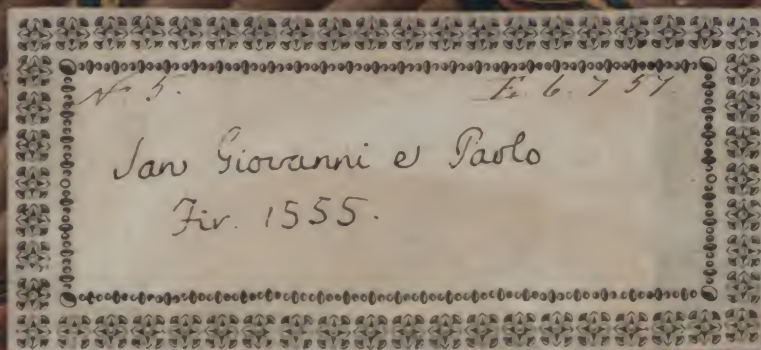 No 5. E. 6. 7 57.
San Giovanni e Paolo
Fir. 1555.